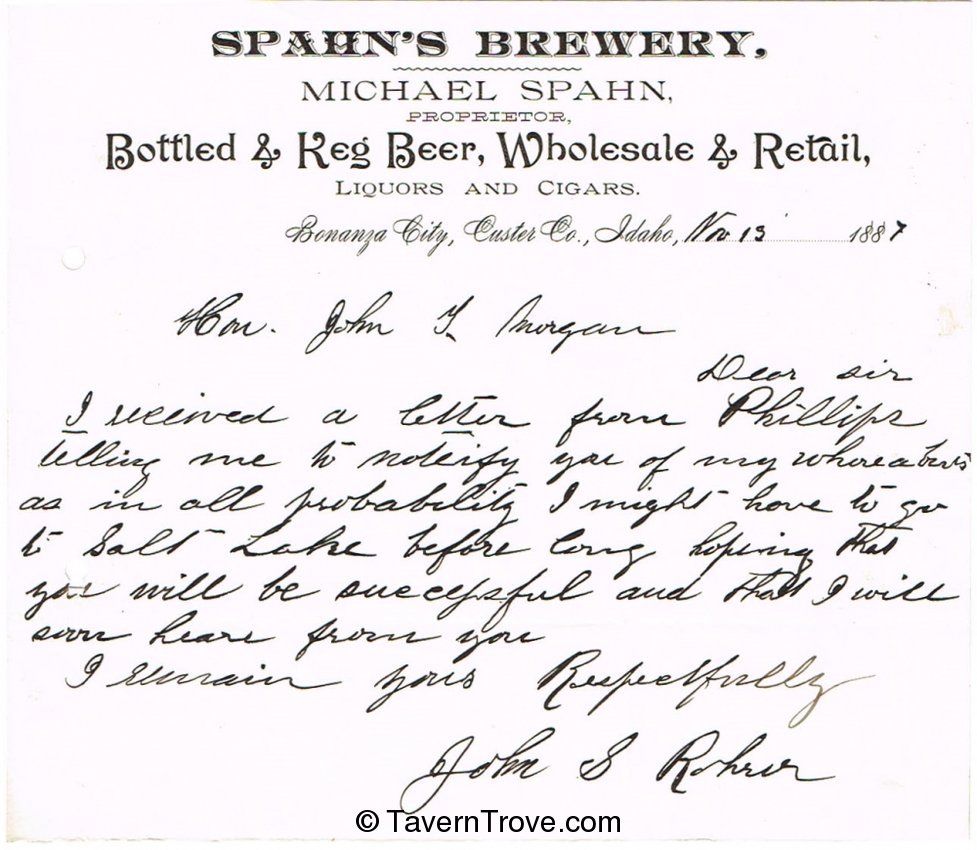 SPAHN'S BREWERY,
MICHAEL SPAHN,
PROPRIETOR,
Bottled & Keg Beer, Wholesale & Retail,
LIQUORS AND CIGARS.
Bonanza City, Custer Co., Idaho, Nov 13 1887
Hon. John T. Morgan
Dear sir
I received a letter from Phillips
telling me to noteify you of my whereabouts
as in all probability I might have to go
to Salt Lake before long hoping that
you will be successful and that I will
soon heare from you
I remain yours Respectfully
John S Rohrer
© TavernTrove.com